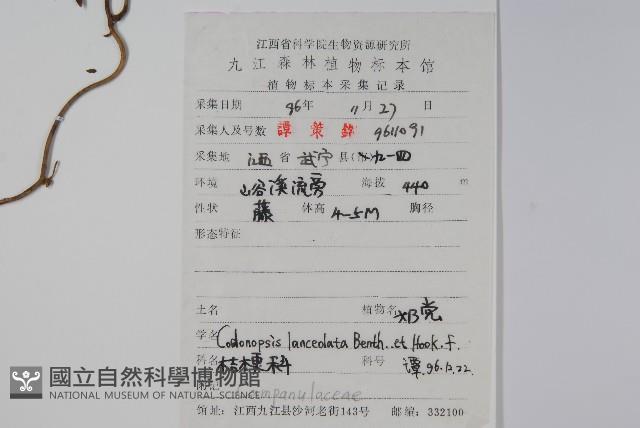 江西省科学院生物资源研究所
九江森林植物标本馆
植物标本采集记录
采集日期 96年 11月 27日
采集人及号数 譚策銘 9611091
采集地 江西省 武宁县 九一四
环境 山谷溪流旁 海拔 440 m
性状 藤 体高 4-5M 胸径
形态特征
土名 植物名 党
学名 Codonopsis lanceolata Benth. et Hook. f.
科名 桔梗科 科号 譚 96.12.22
附记 Campanulaceae
馆址:江西九江县沙河老街143号 邮编:332100
國立自然科學博物館
NATIONAL MUSEUM OF NATURAL SCIENCE